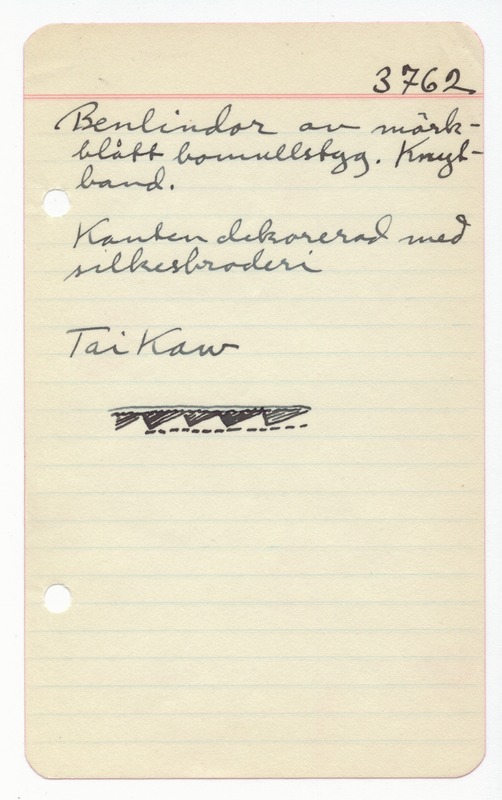 3762
Benlindor av mörk-
blått bomullstyg. Knyt-
band.
Kanten dekorerad med
silkesbroderi
Tai Kaw